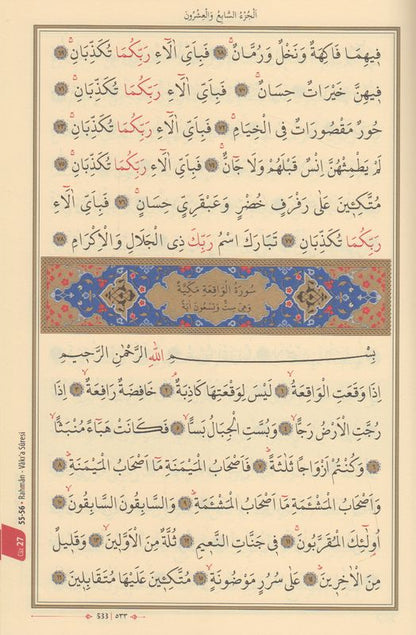 اَلْجُزْءُ السَّابِعُ وَالْعِشْرُونَ
فٖيهِمَا فَاكِهَةٌ وَنَخْلٌ وَرُمَّانٌۚ ﴿٦٨﴾ فَبِاَيِّ اٰلَٓاءِ رَبِّكُمَا تُكَذِّبَانِۚ ﴿٦٩﴾
فٖيهِنَّ خَيْرَاتٌ حِسَانٌۚ ﴿٧٠﴾ فَبِاَيِّ اٰلَٓاءِ رَبِّكُمَا تُكَذِّبَانِۚ ﴿٧١﴾
حُورٌ مَقْصُورَاتٌ فِي الْخِيَامِۚ ﴿٧٢﴾ فَبِاَيِّ اٰلَٓاءِ رَبِّكُمَا تُكَذِّبَانِۚ ﴿٧٣﴾
لَمْ يَطْمِثْهُنَّ اِنْسٌ قَبْلَهُمْ وَلَا جَٓانٌّۚ ﴿٧٤﴾ فَبِاَيِّ اٰلَٓاءِ رَبِّكُمَا تُكَذِّبَانِۚ ﴿٧٥﴾
مُتَّكِـٖٔينَ عَلٰى رَفْرَفٍ خُضْرٍ وَعَبْقَرِيٍّ حِسَانٍۚ ﴿٧٦﴾ فَبِاَيِّ اٰلَٓاءِ
رَبِّكُمَا تُكَذِّبَانِ ﴿٧٧﴾ تَبَارَكَ اسْمُ رَبِّكَ ذِي الْجَلَالِ وَالْاِكْرَامِ ﴿٧٨﴾
سُورَةُ الْوَاقِعَةِ مَكِّيَّةٌ
وَهِيَ سِتٌّ وَتِسْعُونَ اٰيَةً
بِسْمِ اللّٰهِ الرَّحْمٰنِ الرَّحٖيمِ
اِذَا وَقَعَتِ الْوَاقِعَةُۙ ﴿١﴾ لَيْسَ لِوَقْعَتِهَا كَاذِبَةٌۘ ﴿٢﴾ خَافِضَةٌ رَافِعَةٌۙ ﴿٣﴾ اِذَا
رُجَّتِ الْاَرْضُ رَجًّاۙ ﴿٤﴾ وَبُسَّتِ الْجِبَالُ بَسًّاۙ ﴿٥﴾ فَكَانَتْ هَبَٓاءً مُنْبَثًّاۙ
﴿٦﴾ وَكُنْتُمْ اَزْوَاجًا ثَلٰثَةًؕ ﴿٧﴾ فَاَصْحَابُ الْمَيْمَنَةِ مَٓا اَصْحَابُ الْمَيْمَنَةِؕ ﴿٨﴾
وَاَصْحَابُ الْمَشْـَٔمَةِ مَٓا اَصْحَابُ الْمَشْـَٔمَةِؕ ﴿٩﴾ وَالسَّابِقُونَ السَّابِقُونَۙ ﴿١٠﴾
اُو۬لٰٓئِكَ الْمُقَرَّبُونَۚ ﴿١١﴾ فٖي جَنَّاتِ النَّعٖيمِ ﴿١٢﴾ ثُلَّةٌ مِنَ الْاَوَّلٖينَۙ ﴿١٣﴾ وَقَلٖيلٌ
مِنَ الْاٰخِرٖينَؕ ﴿١٤﴾ عَلٰى سُرُرٍ مَوْضُونَةٍۙ ﴿١٥﴾ مُتَّكِـٖٔينَ عَلَيْهَا مُتَقَابِلٖينَ ﴿١٦﴾
Cüz 27
55-56 • Rahmân - Vâkı'a Sûresi
533 | ٥٣٣